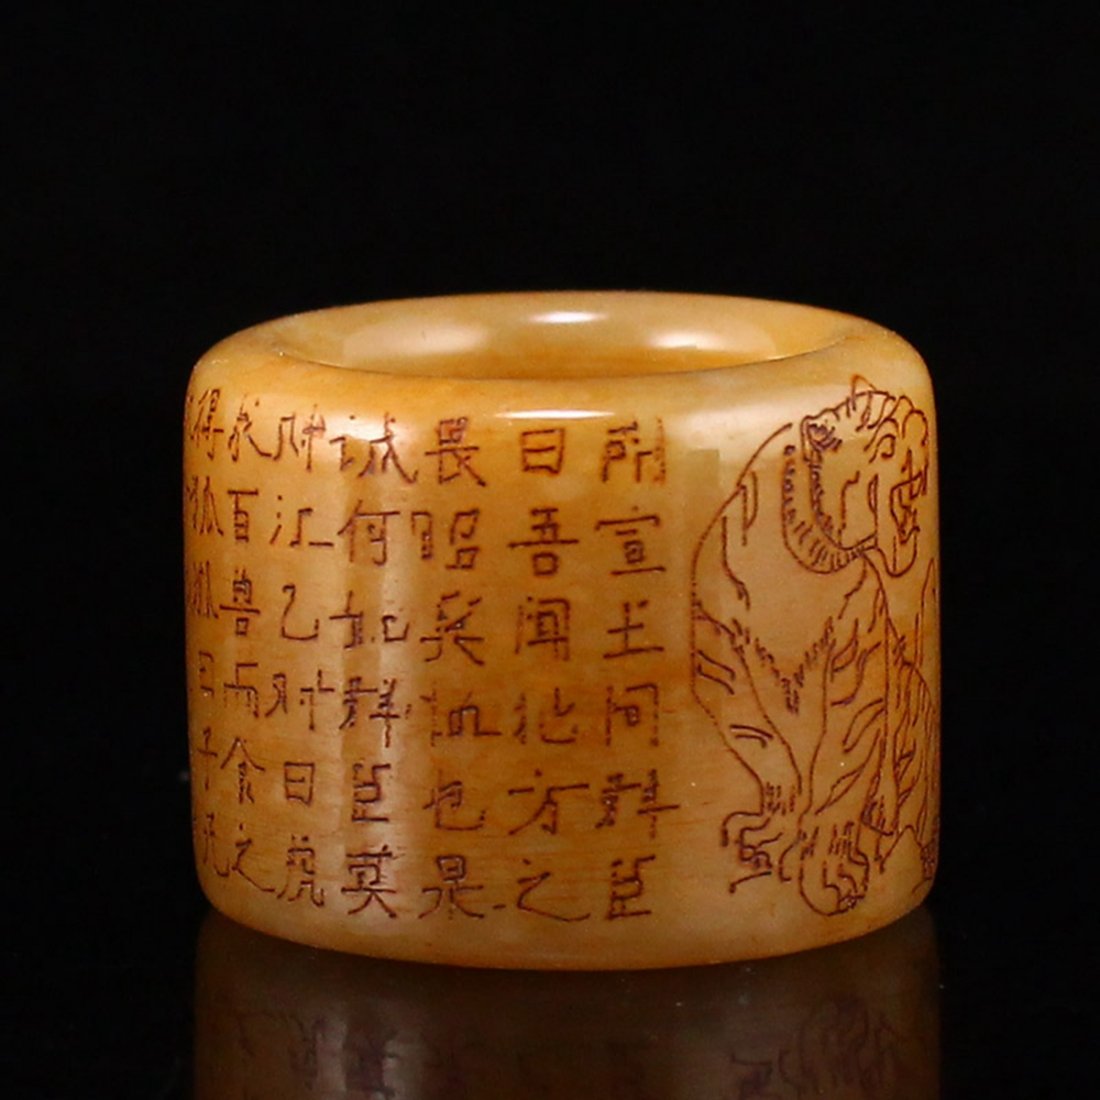 荆宣王问群臣
曰吾闻北方之
畏昭奚恤也果
诚何如群臣莫
对江乙对曰虎
求百兽而食之
得狐狐曰子无